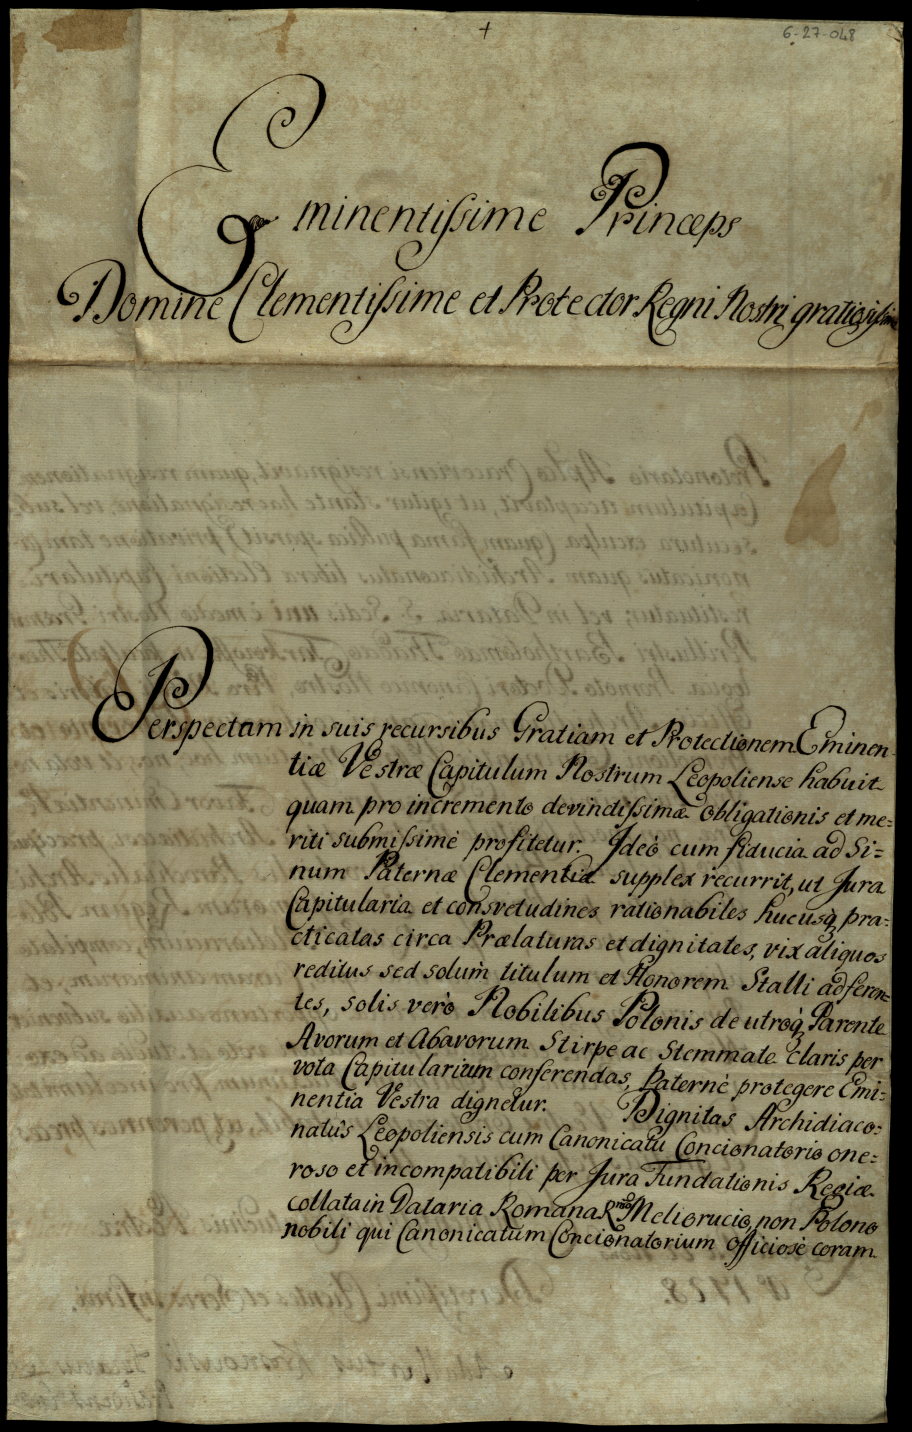 +
6-27-048
Eminentissime Princeps
Domine Clementissime et Protector Regni Nostri gratiosissime
Perspectam in suis recursibus Gratiam et Protectionem Eminen-
tiæ Vestræ Capitulum Nostrum Leopoliense habuit
quam pro incremento devinctissimæ obligationis et me=
riti submissimè profitetur. Ideò cum fiducia ad Si=
num Paternæ Clementiæ supplex recurrit, ut Jura
Capitularia et consvetudines rationabiles hucusq, pra=
cticatas circa Prælaturas et dignitates, vix aliquos
reditus sed solùm titulum et Honorem Stalli adferen=
tes, solis verò Nobilibus Polonis de utroq, Parente
Avorum et Abavorum Stirpe ac Stemmate claris per
vota Capitularium conferendas, Paternè protegere Emi=
nentia Vestra dignetur. Dignitas Archidiaco=
natûs Leopoliensis cum Canonicatu Concionatorio one=
roso et incompatibili per Jura Fundationis Regiæ
collata in Dataria Romana Rmo Meliorucio, non Polono
nobili qui Canonicatum Concionatorium officiosè coram